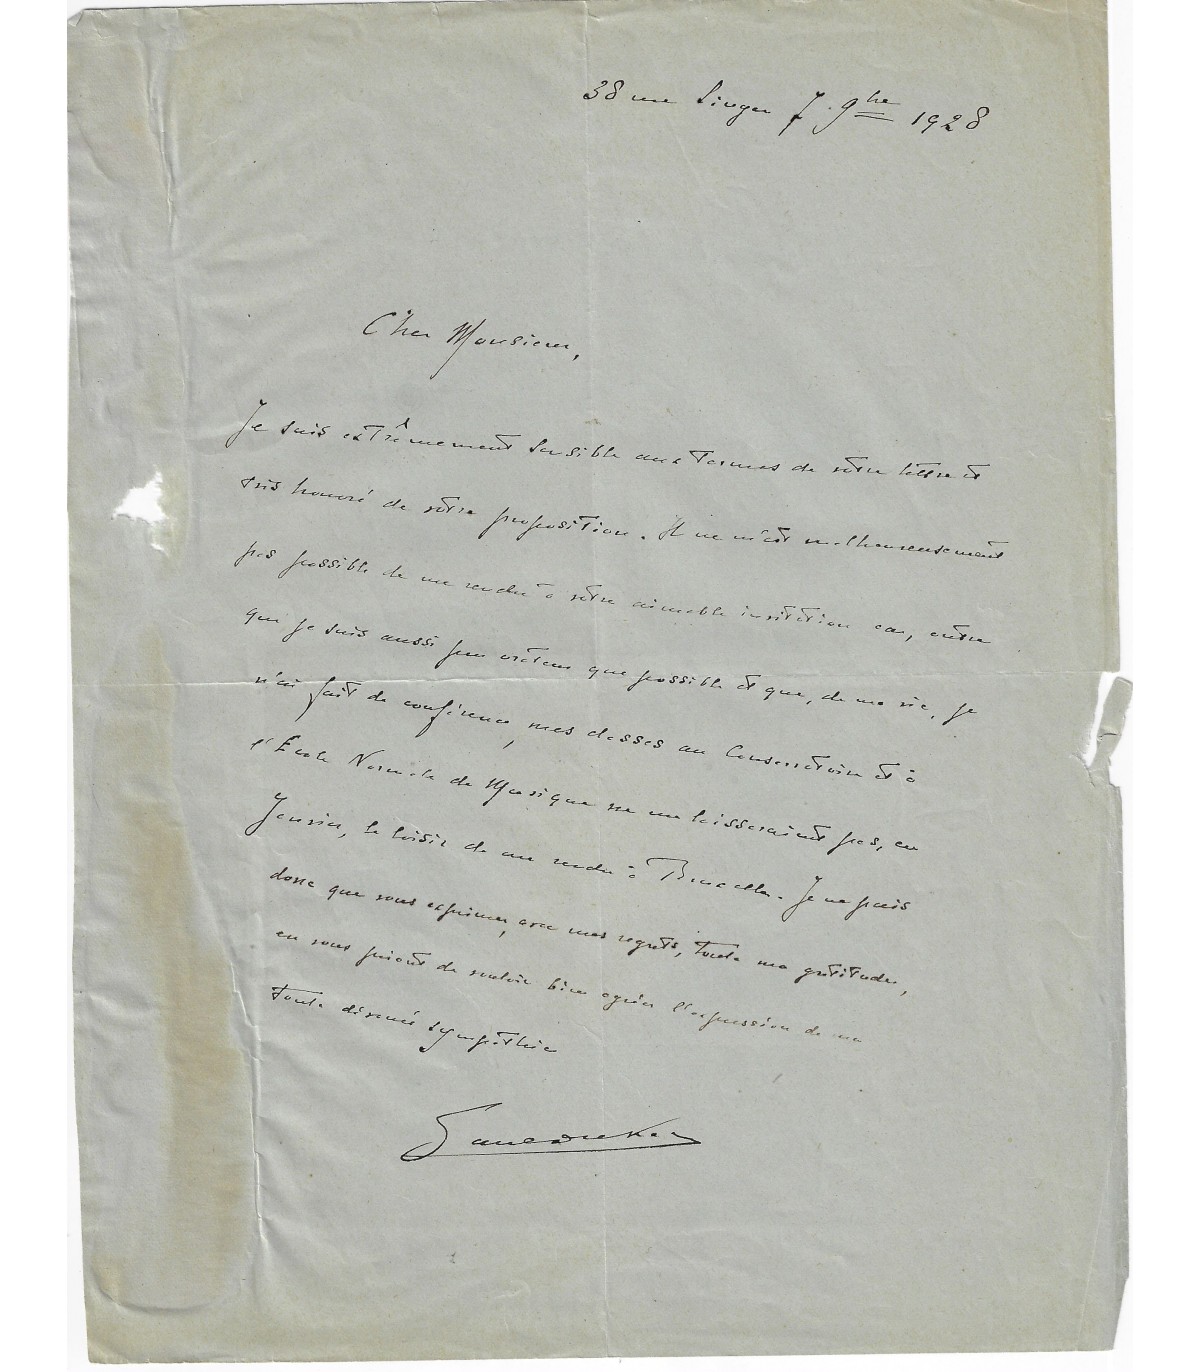 38 rue Singer 7. 9bre 1928
Cher Monsieur,
Je suis extrêmement sensible aux termes de votre lettre et
très honoré de votre proposition. Il ne m'est malheureusement
pas possible de me rendre à votre aimable invitation car, outre
que je suis aussi peu orateur que possible et que, de ma vie, je
n'ai fait de conférence, mes classes au Conservatoire et à
l'École Normale de Musique ne me laisseraient pas, en
Janvier, le loisir de me rendre à Bruxelles. Je ne puis
donc que vous exprimer, avec mes regrets, toute ma gratitude,
en vous priant de vouloir bien agréer l'expression de ma
toute dévouée sympathie
Paul Dukas